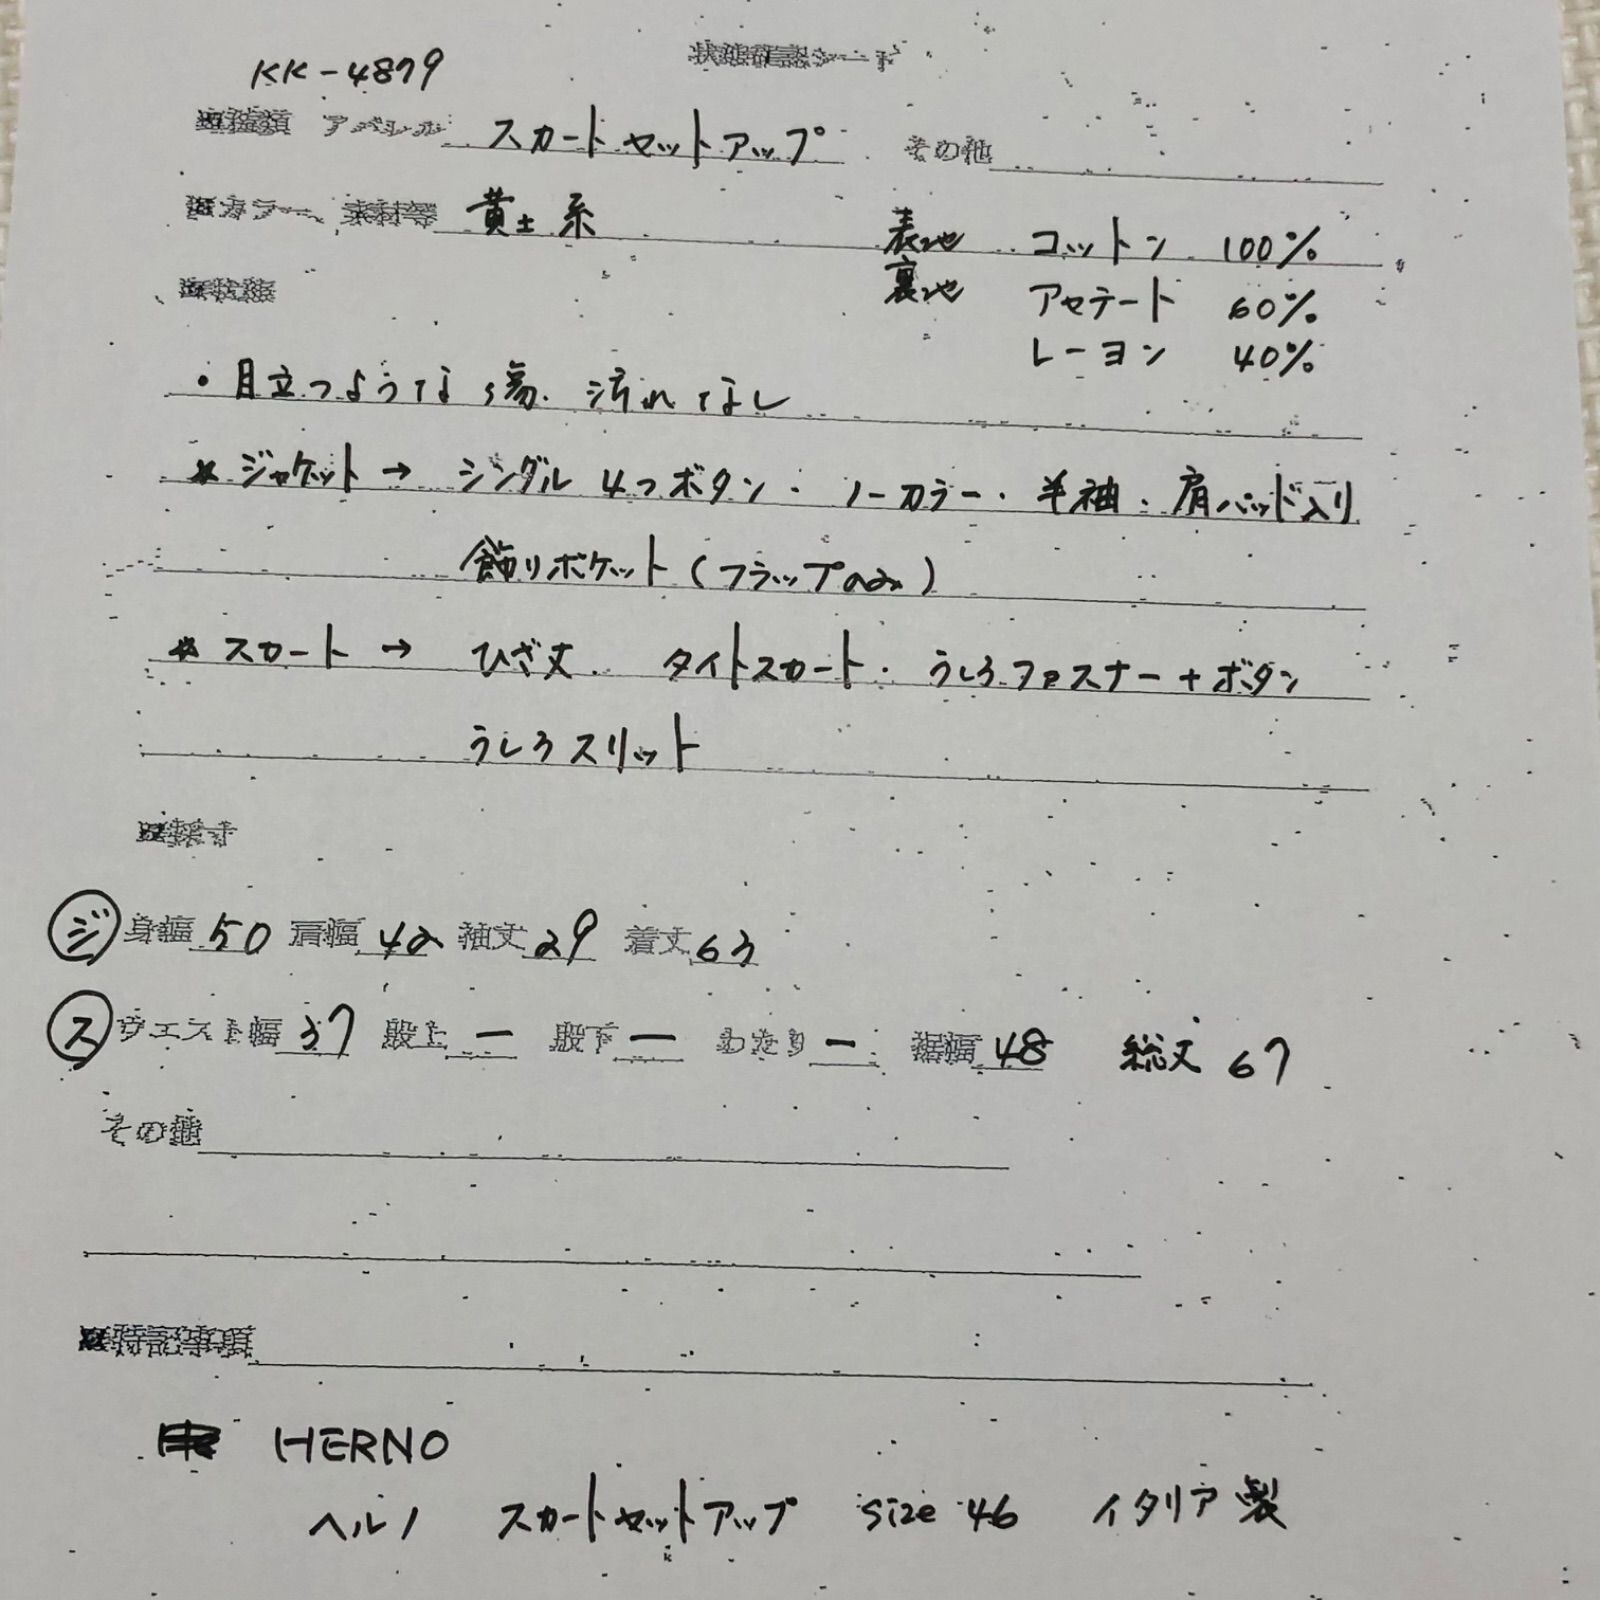 状態確認シート
KK-4879
■種類 アパレル スカートセットアップ その他
■カラー、素材等 黄土系 表地 コットン 100%
裏地 アセテート 60%
レーヨン 40%
■状態
・目立つような傷、汚れなし
* ジャケット → シングル 4つボタン・ノーカラー・半袖・肩パッド入り
飾りポケット(フラップのみ)
* スカート → ひざ丈 タイトスカート・うしろファスナー+ボタン
うしろスリット
■採寸
ジ 身幅 50 肩幅 42 袖丈 29 着丈 63
ス ウエスト幅 37 股上 ー 股下 ー わたり ー 裾幅 48 総丈 67
その他
■特記事項
HERNO
ヘルノ スカートセットアップ size 46 イタリア製